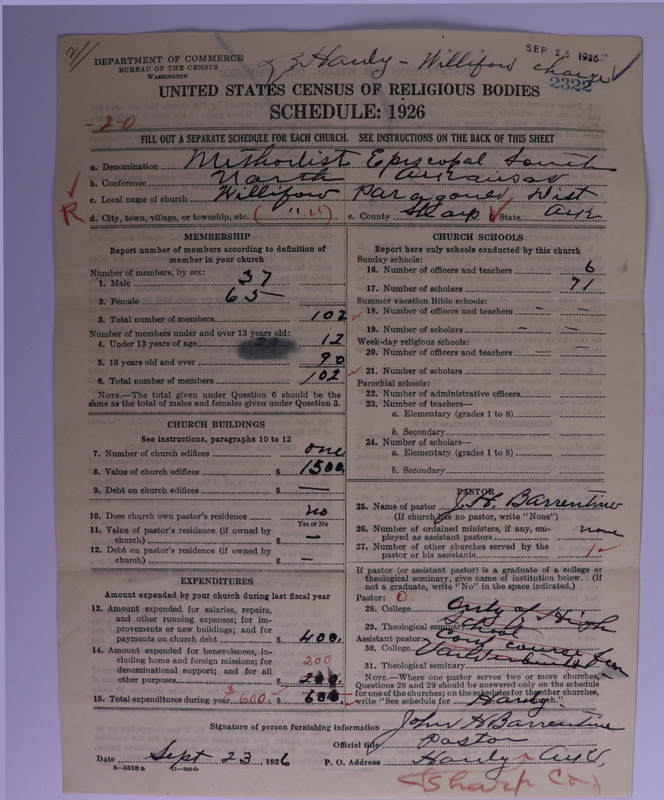 DEPARTMENT OF COMMERCE
BUREAU OF THE CENSUS
WASHINGTON
Hardy - Williford charge
SEP 25 1926
2322
UNITED STATES CENSUS OF RELIGIOUS BODIES
SCHEDULE: 1926
-20
FILL OUT A SEPARATE SCHEDULE FOR EACH CHURCH. SEE INSTRUCTIONS ON THE BACK OF THIS SHEET
a. Denomination Methodist Episcopal South
b. Conference North Arkansas
c. Local name of church Williford Paragould Dist
R d. City, town, village, or township, etc. ( " " ) e. County Sharp State Ark
MEMBERSHIP
Report number of members according to definition of
member in your church
Number of members, by sex:
1. Male 37
2. Female 65
3. Total number of members 102
Number of members under and over 13 years old:
4. Under 13 years of age 12
5. 13 years old and over 90
6. Total number of members 102
NOTE.—The total given under Question 6 should be the
same as the total of males and females given under Question 3.
CHURCH BUILDINGS
See instructions, paragraphs 10 to 12
7. Number of church edifices one
8. Value of church edifices $ 1500.
9. Debt on church edifices $ —
10. Does church own pastor's residence no
Yes or No
11. Value of pastor's residence (if owned by
church) $ —
12. Debt on pastor's residence (if owned by
church) $ —
EXPENDITURES
Amount expended by your church during last fiscal year
13. Amount expended for salaries, repairs,
and other running expenses; for im-
provements or new buildings; and for
payments on church debt $ 400.
14. Amount expended for benevolences, in-
cluding home and foreign missions; for
denominational support; and for all
other purposes $ 200
15. Total expenditures during year $600 $ 600.
CHURCH SCHOOLS
Report here only schools conducted by this church
Sunday schools:
16. Number of officers and teachers 6
17. Number of scholars 71
Summer vacation Bible schools:
18. Number of officers and teachers — —
19. Number of scholars — —
Week-day religious schools:
20. Number of officers and teachers — —
21. Number of scholars
Parochial schools:
22. Number of administrative officers
23. Number of teachers—
a. Elementary (grades 1 to 8)
b. Secondary
24. Number of scholars—
a. Elementary (grades 1 to 8)
b. Secondary
PASTOR
25. Name of pastor J. H. Barrentine
(If church has no pastor, write "None")
26. Number of ordained ministers, if any, em-
ployed as assistant pastors none
27. Number of other churches served by the
pastor or his assistants 1
If pastor (or assistant pastor) is a graduate of a college or
theological seminary, give name of institution below. (If
not a graduate, write "No" in the space indicated.)
Pastor: 0
28. College only of High
29. Theological seminary School
Assistant pastor:
30. College
31. Theological seminary
NOTE.—Where one pastor serves two or more churches,
Questions 28 and 29 should be answered only on the schedule
for one of the churches; on the schedules for the other churches,
write "See schedule for Hardy church."
Signature of person furnishing information John H Barrentine
Official title Pastor
Date Sept 23, 1926 P. O. Address Hardy Ark,
8—5518a
(Sharp Co)